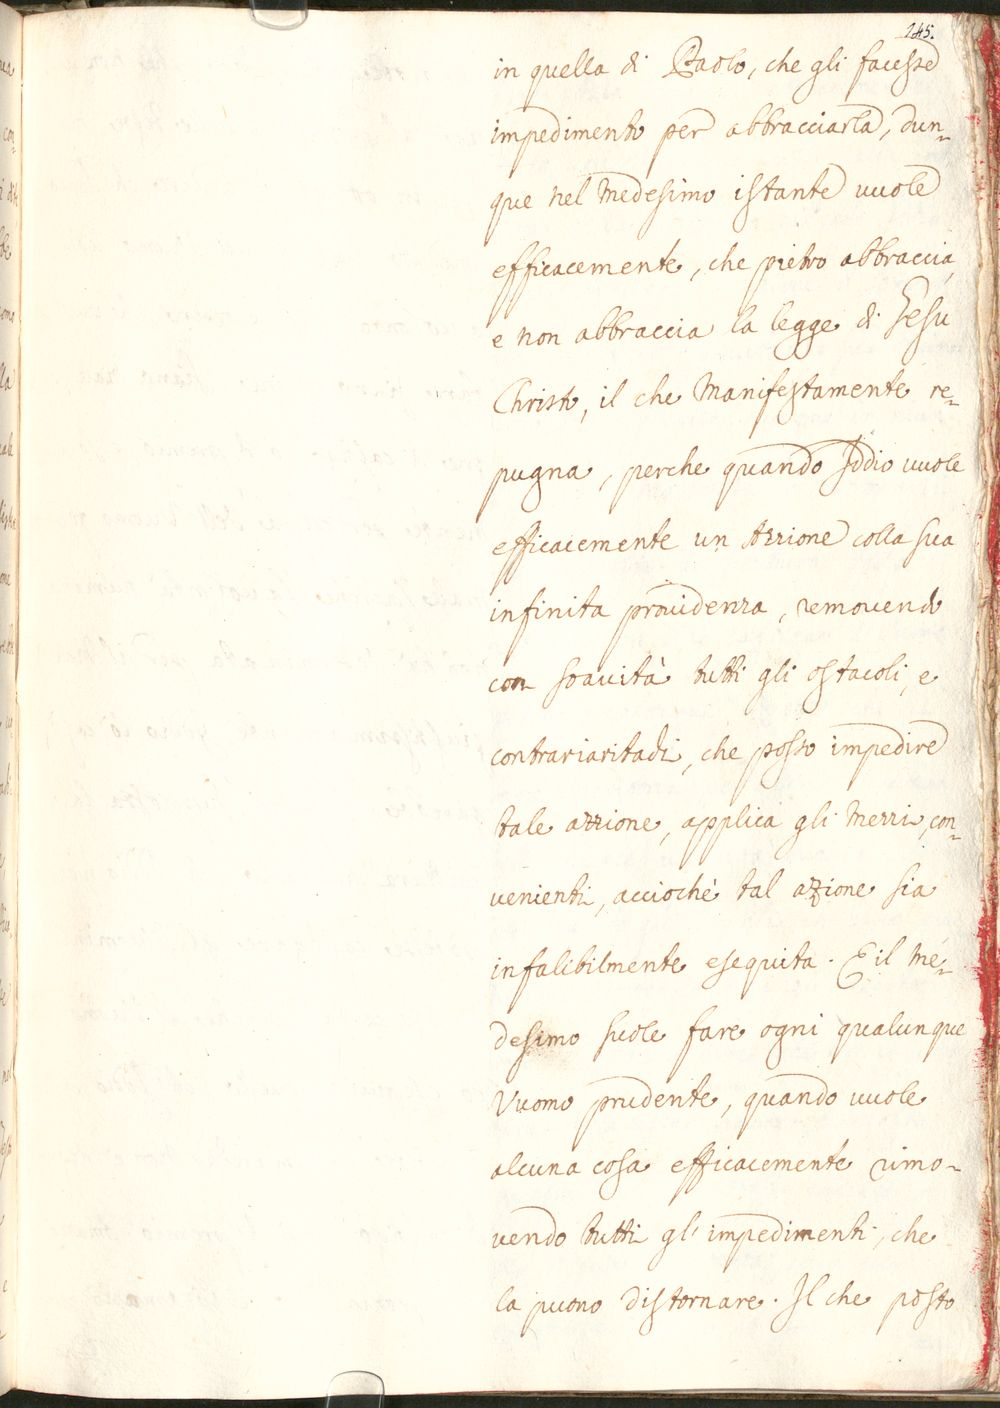 145.
in quella di Paolo, che gli facesse
impedimento per abbracciarla, dun-
que nel medesimo istante vuole
efficacemente, che pietro abbraccia,
e non abbraccia la legge di Gesu
Christo, il che Manifestamente re-
pugna, perche quando Iddio vuole
efficacemente un Azzione colla sua
infinita providenza, removendo
con soavità tutti gli ostacoli, e
contrariaritadi, che posso impedire
tale azzione, applica gli mezzi, con-
venienti, acciochè tal azzione sia
infalibilmente esequita. E il me-
desimo suole fare ogni qualunque
Vuomo prudente, quando vuole
alcuna cosa efficacemente rimo-
vendo tutti gl'impedimenti, che
la puono distornare. Il che posto